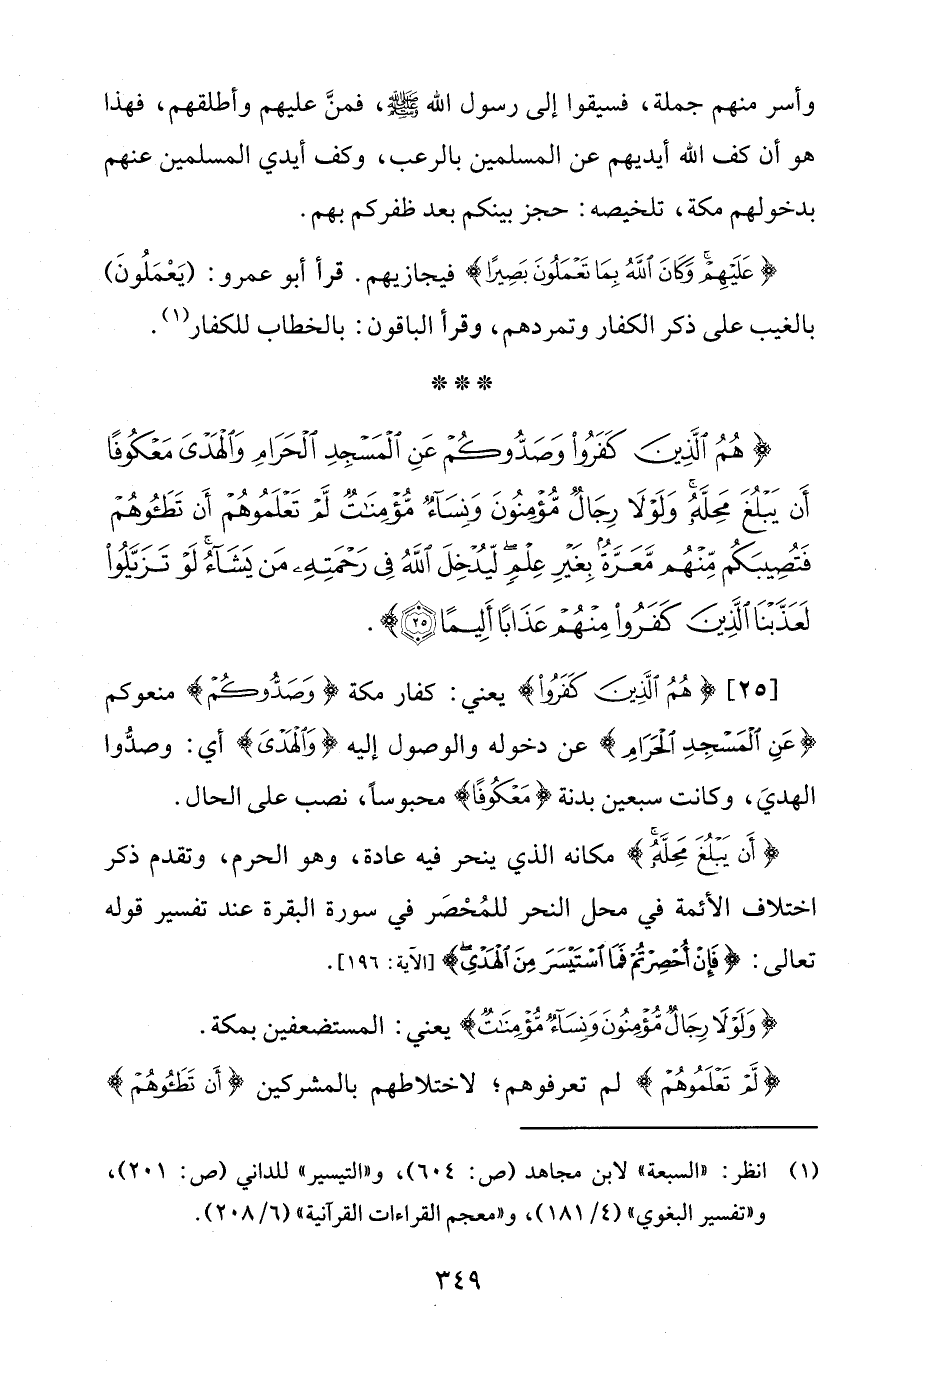 وأسر منهم جملة، فسيقوا إلى رسول الله ﷺ، فمنَّ عليهم وأطلقهم، فهذا
هو أن كف الله أيديهم عن المسلمين بالرعب، وكف أيدي المسلمين عنهم
بدخولهم مكة، تلخيصه: حجز بينكم بعد ظفركم بهم.
﴿عَلَيْهِمْ ۚ وَكَانَ ٱللَّهُ بِمَا تَعْمَلُونَ بَصِيرًا﴾ فيجازيهم. قرأ أبو عمرو: (يَعْمَلُونَ)
بالغيب على ذكر الكفار وتمردهم، وقرأ الباقون: بالخطاب للكفار(١).
* * *
﴿هُمُ ٱلَّذِينَ كَفَرُوا۟ وَصَدُّوكُمْ عَنِ ٱلْمَسْجِدِ ٱلْحَرَامِ وَٱلْهَدْىَ مَعْكُوفًا
أَن يَبْلُغَ مَحِلَّهُۥ ۚ وَلَوْلَا رِجَالٌ مُّؤْمِنُونَ وَنِسَآءٌ مُّؤْمِنَٰتٌ لَّمْ تَعْلَمُوهُمْ أَن تَطَـُٔوهُمْ
فَتُصِيبَكُم مِّنْهُم مَّعَرَّةٌۢ بِغَيْرِ عِلْمٍ ۖ لِّيُدْخِلَ ٱللَّهُ فِى رَحْمَتِهِۦ مَن يَشَآءُ ۚ لَوْ تَزَيَّلُوا۟
لَعَذَّبْنَا ٱلَّذِينَ كَفَرُوا۟ مِنْهُمْ عَذَابًا أَلِيمًا ٢٥﴾.
[٢٥] ﴿هُمُ ٱلَّذِينَ كَفَرُوا۟﴾ يعني: كفار مكة ﴿وَصَدُّوكُمْ﴾ منعوكم
﴿عَنِ ٱلْمَسْجِدِ ٱلْحَرَامِ﴾ عن دخوله والوصول إليه ﴿وَٱلْهَدْىَ﴾ أي: وصدُّوا
الهديَ، وكانت سبعين بدنة ﴿مَعْكُوفًا﴾ محبوساً، نصب على الحال.
﴿أَن يَبْلُغَ مَحِلَّهُۥ ۚ﴾ مكانه الذي ينحر فيه عادة، وهو الحرم، وتقدم ذكر
اختلاف الأئمة في محل النحر للمُحْصَر في سورة البقرة عند تفسير قوله
تعالى: ﴿فَإِنْ أُحْصِرْتُمْ فَمَا ٱسْتَيْسَرَ مِنَ ٱلْهَدْىِ ۖ﴾ [الآية: ١٩٦].
﴿وَلَوْلَا رِجَالٌ مُّؤْمِنُونَ وَنِسَآءٌ مُّؤْمِنَٰتٌ﴾ يعني: المستضعفين بمكة.
﴿لَّمْ تَعْلَمُوهُمْ﴾ لم تعرفوهم؛ لاختلاطهم بالمشركين ﴿أَن تَطَـُٔوهُمْ﴾
(١) انظر: «السبعة» لابن مجاهد (ص: ٦٠٤)، و«التيسير» للداني (ص: ٢٠١)،
و«تفسير البغوي» (٤/ ١٨١)، و«معجم القراءات القرآنية» (٦/ ٢٠٨).
٣٤٩